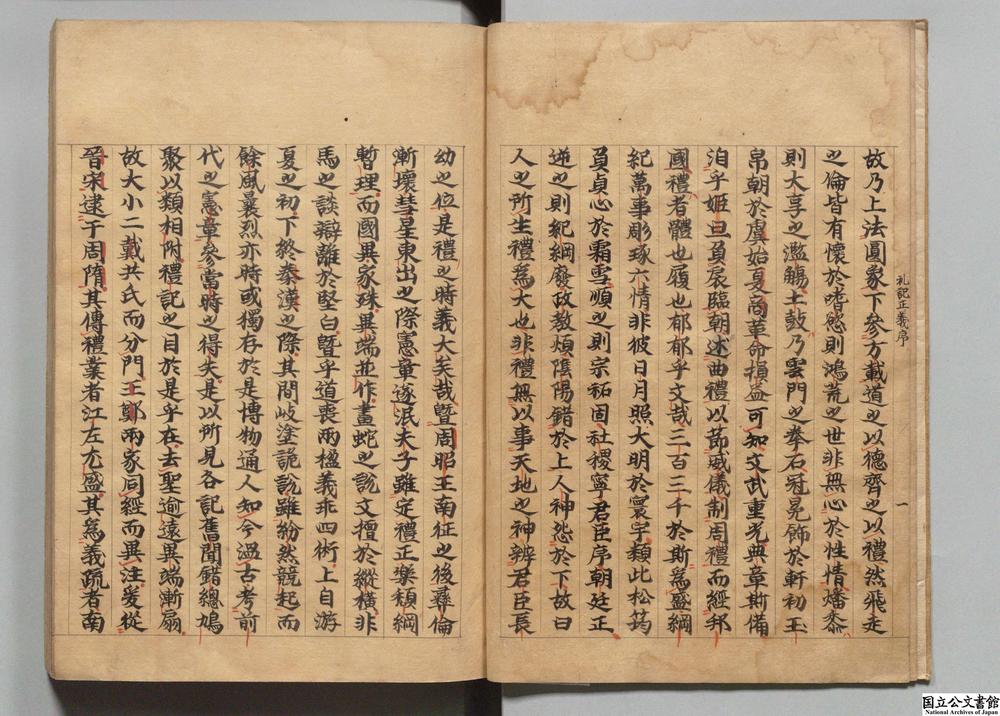 礼記正義序
一
故乃上法圓象下參方載道之以德齊之以禮然飛走
之倫皆有懷於嗜慾則鴻荒之世非無心於性情燔黍
則大享之濫觴土鼓乃雲門之拳石冠冕飾於軒初玉
帛朝於虞始夏商革命損益可知文武重光典章斯備
洎乎姬旦負扆臨朝述曲禮以節威儀制周禮而經邦
國禮者體也履也郁郁乎文哉三百三千於斯爲盛綱
紀萬事彫琢六情非彼日月照大明於寰宇類此松筠
負貞心於霜雪順之則宗祏固社稷寧君臣序朝廷正
逆之則紀綱廢政敎煩陰陽錯於上人神怨於下故曰
人之所生禮爲大也非禮無以事天地之神辨君臣長
幼之位是禮之時義大矣哉曁周昭王南征之後彝倫
漸壞彗星東出之際憲章遂泯夫子雖定禮正樂頹綱
暫理而國異家殊異端並作畫蛇之說文擅於縱橫非
馬之談辯離於堅白曁乎道喪兩楹義乖四術上自游
夏之初下終秦漢之際其間岐塗詭說雖紛然競起而
餘風曩烈亦時或獨存於是博物通人知今溫古考前
代之憲章參當時之得失是以所見各記舊聞錯總鳩
聚以類相附禮記之目於是乎在去聖逾遠異端漸扇
故大小二戴共氏而分門王鄭兩家同經而異注爰從
晉宋逮于周隋其傳禮業者江左尤盛其爲義疏者南
国立公文書館
National Archives of Japan